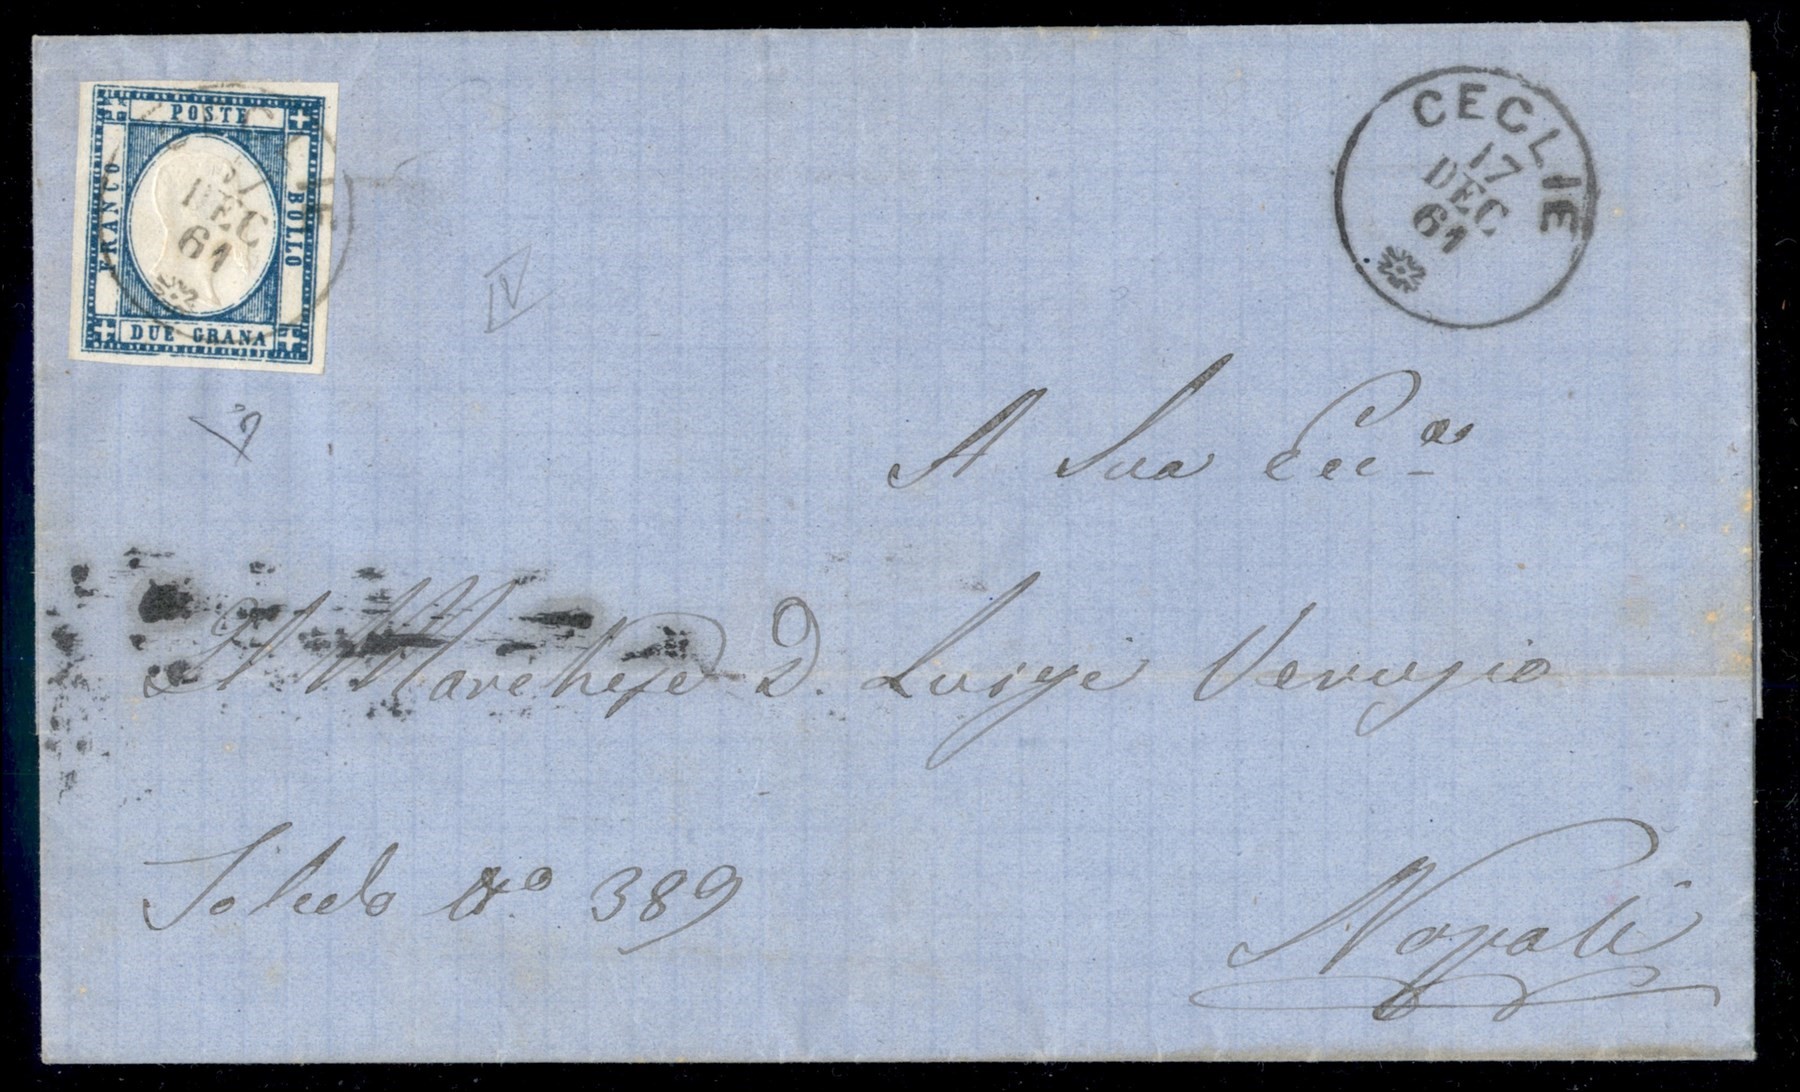 POSTE
FRANCO
BOLLO
DUE GRANA
CECLIE
17
DEC
61
CECLIE
17
DEC
61
A Sua Ecc.
Il Marchese D. Luige Verusio
Toledo No. 389
Napoli